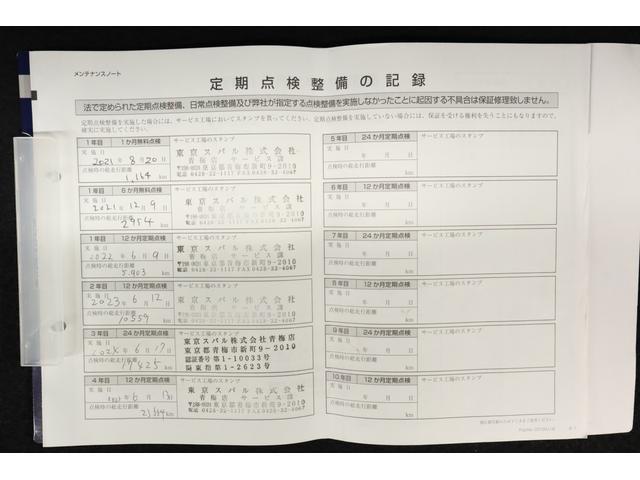 メンテナンスノート
定期点検整備の記録
法で定められた定期点検整備、日常点検整備及び弊社が指定する点検整備を実施しなかったことに起因する不具合は保証修理致しません。
定期点検整備を実施した場合には、サービス工場においてスタンプを貰ってください。定期点検整備を実施していない場合には、保証を受ける権利を失うことにもなりますので、
確実に実施してください。
1年目 1か月無料点検 サービス工場のスタンプ
実施日
2021年8月20日
点検時の総走行距離
1,164 km
東京スバル株式会社
青梅店 サービス課
東京都青梅市新町9-2010
電話 0428-32-1117 FAX 0428-32-4067
1年目 6か月無料点検 サービス工場のスタンプ
実施日
2021年12月9日
点検時の総走行距離
2954 km
東京スバル株式会社
青梅店 サービス課
東京都青梅市新町9-2010
電話 0428-32-1117 FAX 0428-32-4067
1年目 12か月定期点検 サービス工場のスタンプ
実施日
2022年6月9日
点検時の総走行距離
5,903 km
東京スバル株式会社
青梅店 サービス課
東京都青梅市新町9-2010
電話 0428-32-1117 FAX 0428-32-4067
2年目 12か月定期点検 サービス工場のスタンプ
実施日
2023年6月12日
点検時の総走行距離
10559 km
東京スバル株式会社
青梅店 サービス課
東京都青梅市新町9-2010
電話 0428-32-1117 FAX 0428-32-4067
3年目 24か月定期点検 サービス工場のスタンプ
実施日
年6月17日
点検時の総走行距離
19425 km
東京スバル株式会社青梅店
東京都青梅市新町9-2010
認証番号第1-10033号
関東指第1-2623号
4年目 12か月定期点検 サービス工場のスタンプ
実施日
年6月日
点検時の総走行距離
km
東京スバル株式会社
青梅店 サービス課
東京都青梅市新町9-2010
電話 0428-32-1117 FAX 0428-32-4067
5年目 24か月定期点検 サービス工場のスタンプ
実施日
年 月 日
点検時の総走行距離
km
6年目 12か月定期点検 サービス工場のスタンプ
実施日
年 月 日
点検時の総走行距離
km
7年目 24か月定期点検 サービス工場のスタンプ
実施日
年 月 日
点検時の総走行距離
km
8年目 12か月定期点検 サービス工場のスタンプ
実施日
年 月 日
点検時の総走行距離
km
9年目 24か月定期点検 サービス工場のスタンプ
実施日
年 月 日
点検時の総走行距離
km
10年目 12か月定期点検 サービス工場のスタンプ
実施日
年 月 日
点検時の総走行距離
km